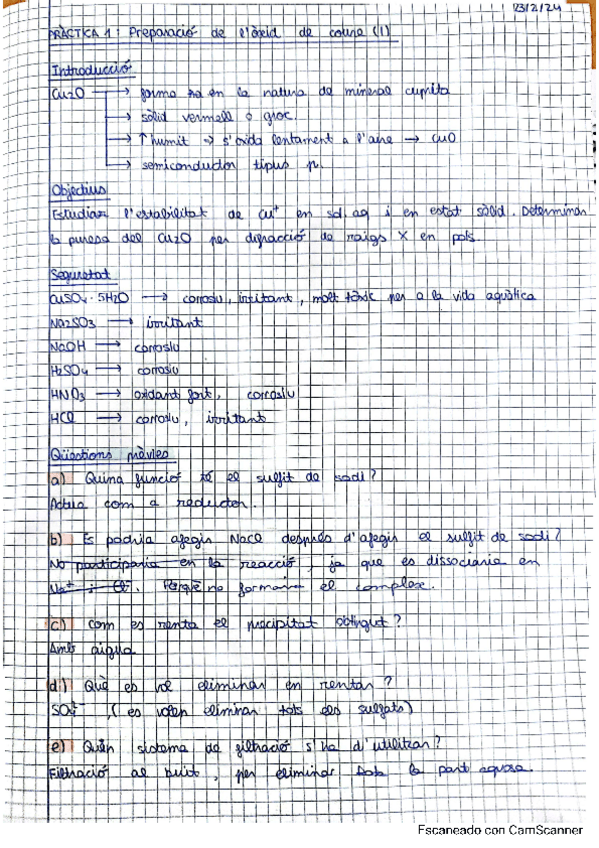 23/2/24
PRÀCTICA 1: Preparació de l'òxid de coure (I)
Introducció
Cu2O → forma en la natura de mineral cuprita
→ sòlid vermell o groc.
→ ↑humit → s'oxida lentament a l'aire → CuO
→ semiconductor tipus p.
Objectius
Estudiar l'estabilitat de Cu+ en sol. aq i en estat sòlid. Determinar
la puresa del Cu2O per difracció de raigs X en pols.
Seguretat
CuSO4 · 5H2O → corrosiu, irritant, molt tòxic per a la vida aquàtica
Na2SO3 → irritant
NaOH → corrosiu
H2SO4 → corrosiu
HNO3 → oxidant fort, corrosiu
HCl → corrosiu, irritant
Qüestions prèvies
a) Quina funció té el sulfit de sodi?
Actua com a reductor.
b) Es podria afegir NaCl després d'afegir el sulfit de sodi?
No participaria en la reacció, ja que es dissociaria en
Na+ i Cl-. Perquè no formaria el complexe.
c) Com es renta el precipitat obtingut?
Amb aigua
d) Què es vol eliminar en rentar?
SO4²⁻, (es volen eliminar tots els sulfats)
e) Quin sistema de filtració s'ha d'utilitzar?
Filtració al buit, per eliminar tota la part aquosa.
Escaneado con CamScanner